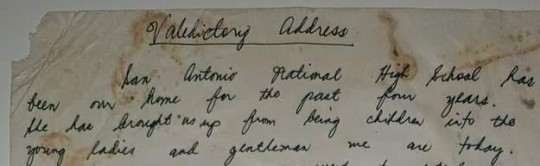 Valedictory Address
San Antonio National High School has
been our home for the past four years.
He has brought us up from being children into the
young ladies and gentleman we are today.